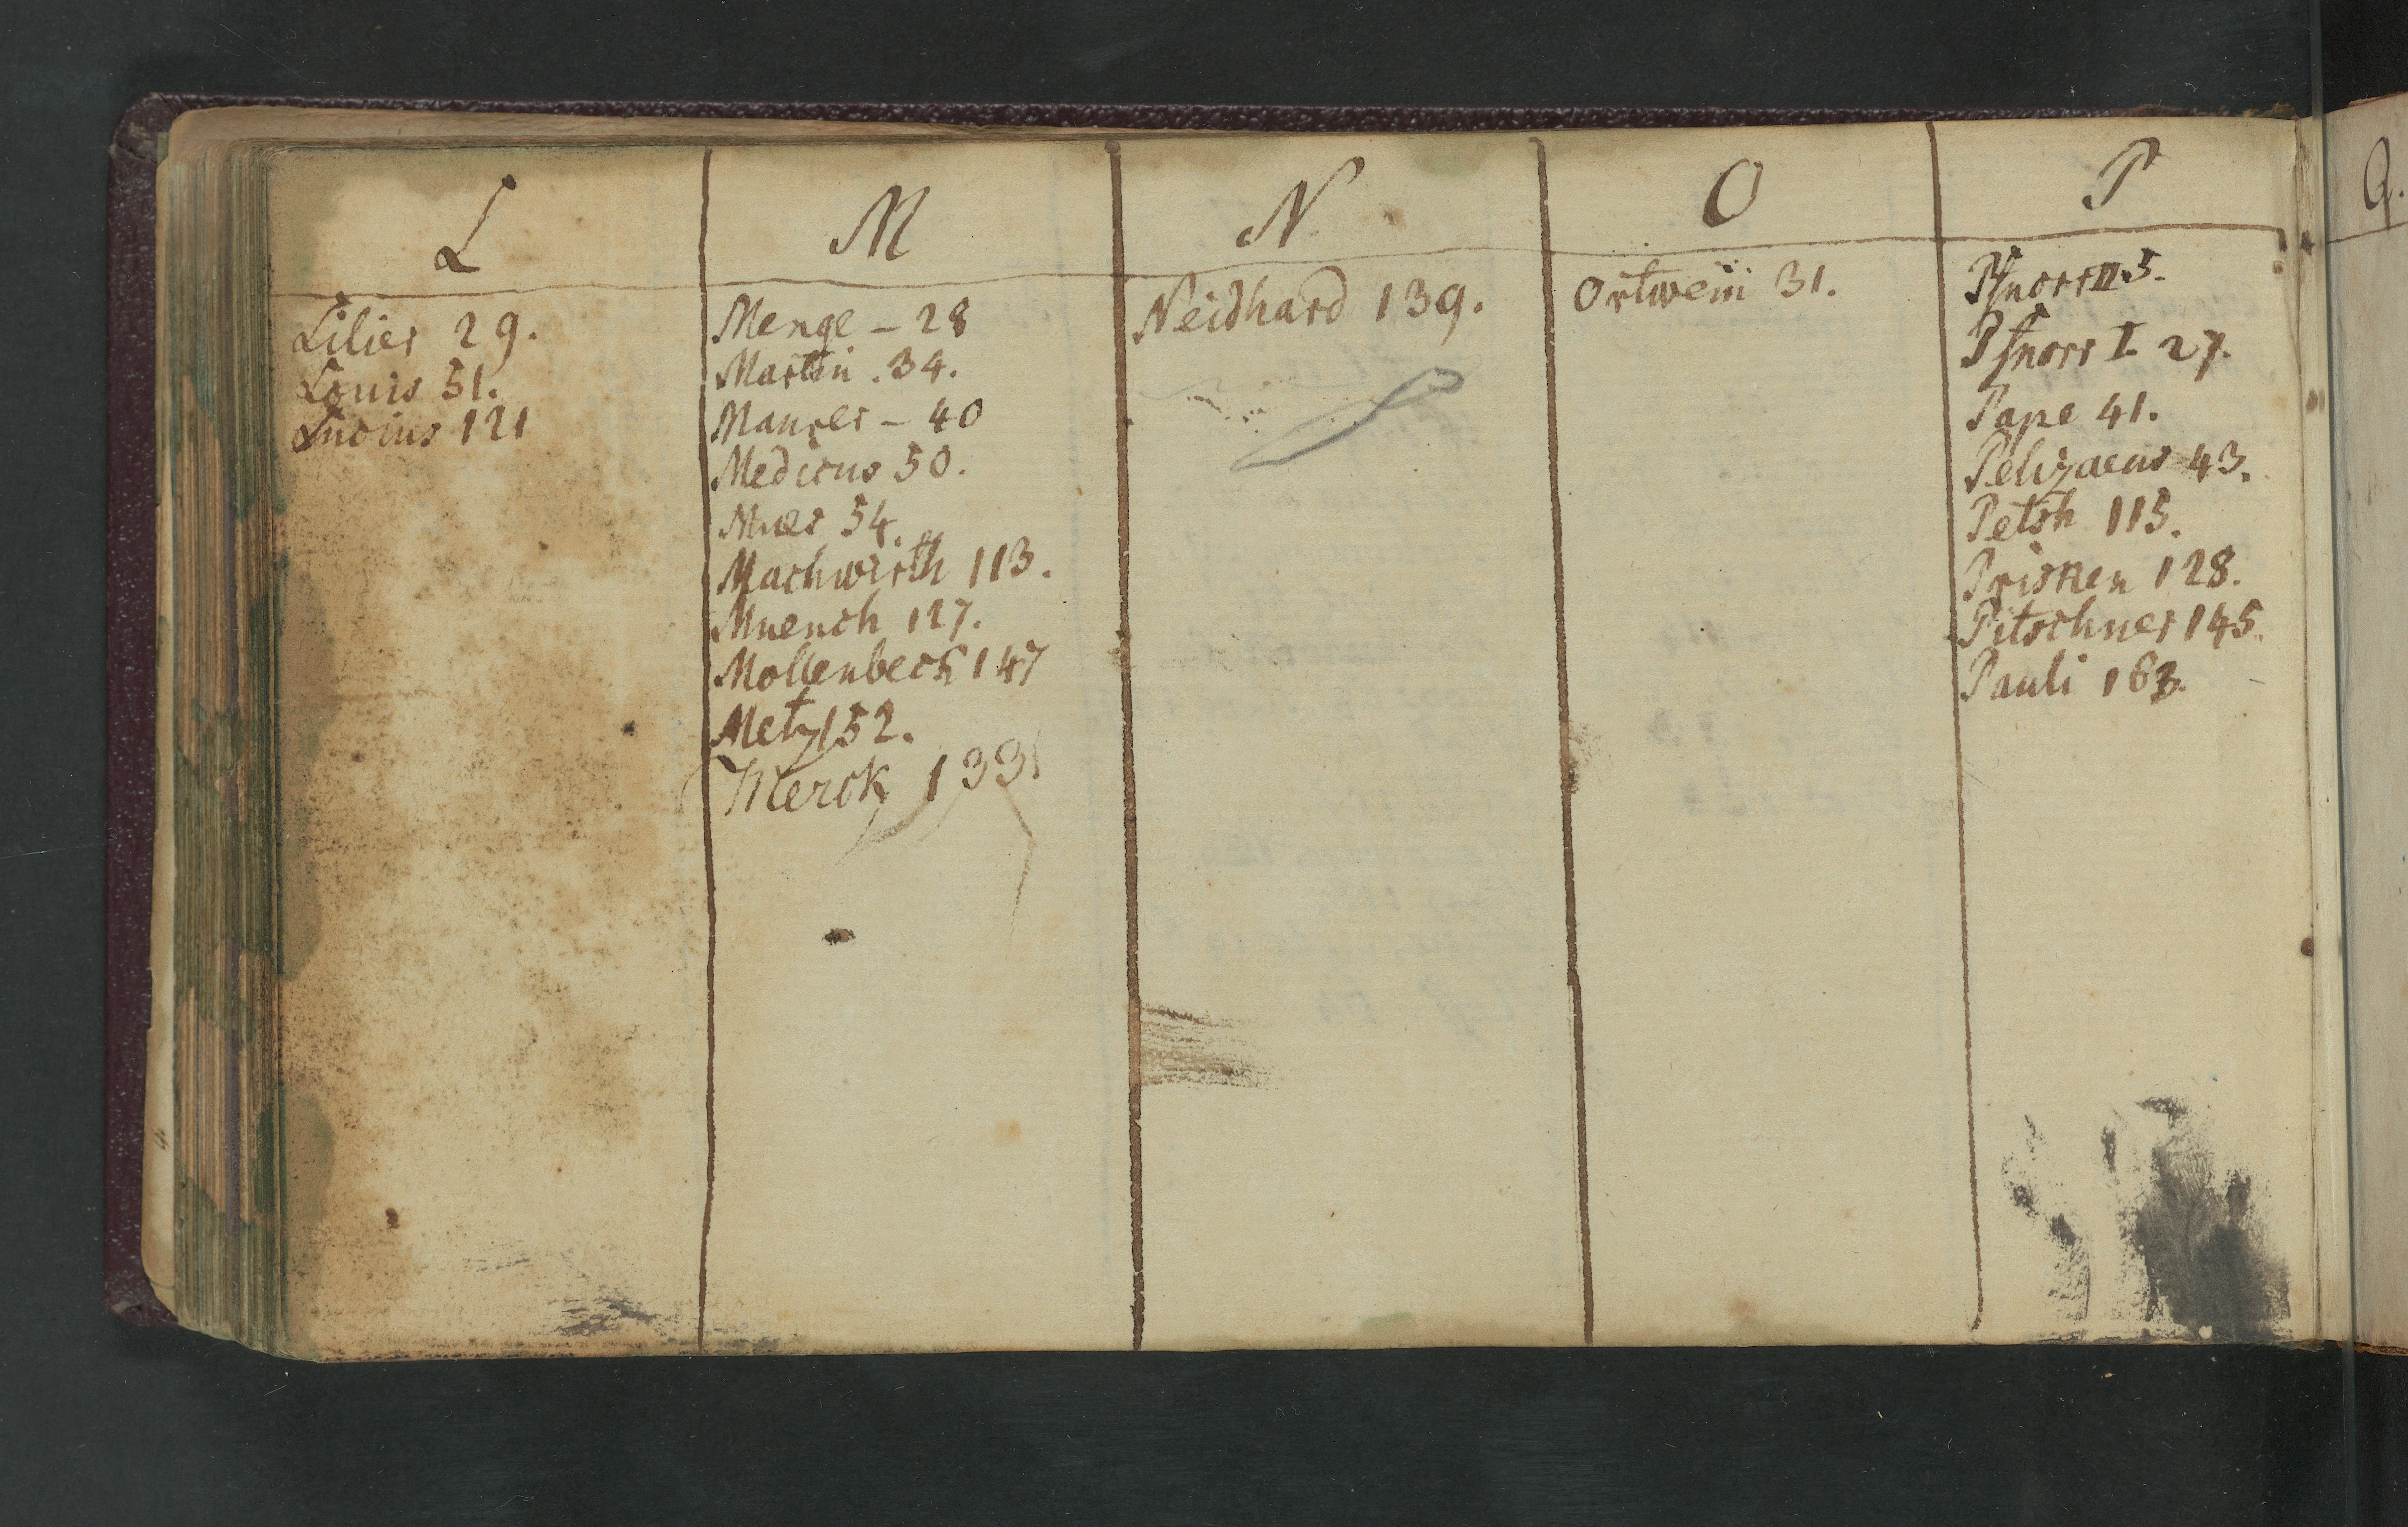 L
Lilier 29.
Louis 51.
Lucius 121
M
Menge – 28
Martin . 34.
Maurer – 40
Medicus 50.
54.
Machwirth 113.
Muench 127.
Mollenbeck 147
Metz 152.
Merck 133
N
Neidhard 139.
O
Ortwein 31.
P
Pfnorr II. 5.
Pfnorr I. 27.
Pape 41.
Pelizaeus 43.
Petsh 115.
Prisken 128.
Pitschner 145.
Pauli 163.
Q.